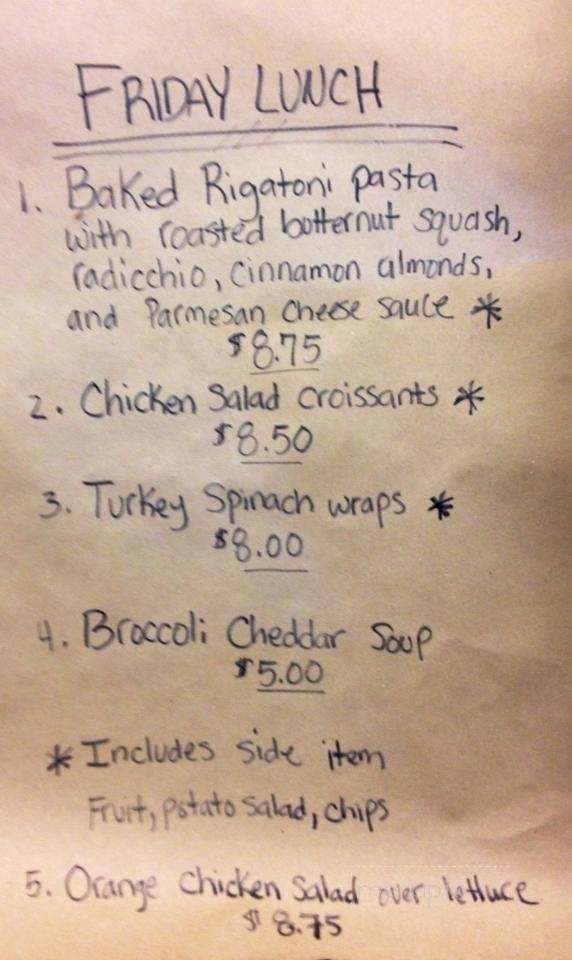 FRIDAY LUNCH
1. Baked Rigatoni pasta
with roasted botternut squash,
radicchio, cinnamon almonds,
and Parmesan cheese sauce *
$8.75
2. Chicken Salad croissants *
$8.50
3. Turkey Spinach wraps *
$8.00
4. Broccoli Cheddar Soup
$5.00
* Includes side item
Fruit, potato salad, chips
5. Orange Chicken Salad over lettuce
$8.75